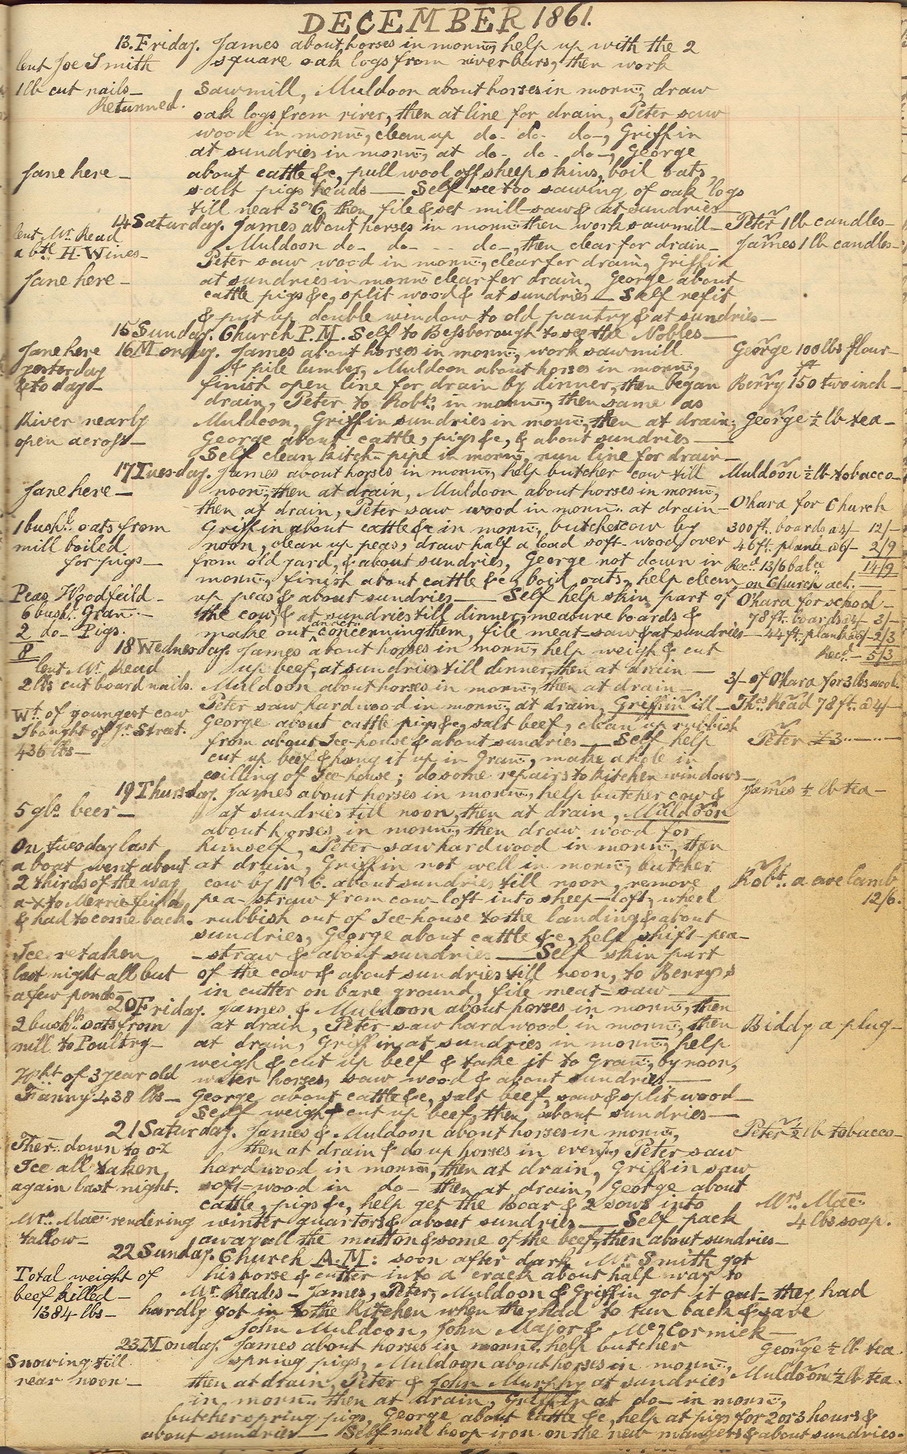 DECEMBER 1861.
13. Friday. James about horses in morng, help up with the 2
lent Joe Smith
square oak logs from river burs, then work
1 lb cut nails—
Sawmill, Muldoon about horses in morng, draw
Returned.
oak logs from river, then at line for drain, Peter saw
wood in morng, clean up do- do- do-, Griffin
at sundries in morng, at do- do- do-, George
Jane here—
about cattle &c, pull wool off sheep skins, boil oats
salt pigs heads— Self see too sawing of oak logs
till near 3 o'C, then file & set mill-saw & at sundries—
14 Saturday. James about horses in morng then work sawmill—
Peter 1 lb candles—
lent Mr. Read
Muldoon do- do- do-, then clear for drain—
James 1 lb candles—
a btl. H. Wines—
Peter saw wood in morng, clear for drain, Griffin
Jane here—
at sundries in morng clear for drain, George about
cattle pigs &c, split wood & at sundries— Self refit
& put up double window to old pantry & at sundries—
15 Sunday. Church P.M. Self to Bessborough to see the Nobles—
Jane here
16 Monday. James about horses in morng, work sawmill
George 100 lbs flour
yesterday
& pile lumber, Muldoon about horses in morng,
& to day—
finish open line for drain by dinner, then began
Berry 150 two inch—
drain, Peter to Robts. in morng, then same as
River nearly
Muldoon, Griffin sundries in morng, then at drain,
George ½ lb tea—
open across—
George about cattle, pigs &c, & about sundries—
Self clean kitchn pipe in morng, run line for drain—
17 Tuesday. James about horses in morng, help butcher cow till
Muldoon ½ lb tobacco—
Jane here—
noon, then at drain, Muldoon about horses in morng,
then at drain, Peter saw wood in morng at drain—
O'hara for Church
1 bushl. oats from
Griffin about cattle &c in morng, butcher cow by
300 ft. boards a 4/- 12/-
mill boiled
noon, clean up peas, draw half a load soft-wood over
46 ft. plank a 6/- 2/9
for pigs—
from old yard, & about sundries, George not down in
Recd. 13/6 balce 14/9
morng, finish about cattle &c, boil oats, help clean
on Church act.—
Peas Hoodfeild—
up peas & about sundries— Self help skin part of
O'hara for school—
6 bushl. Gran—
the cow, & at sundries till dinner, measure boards &
78 ft. boards a 4/- 3/-
2 do— Pigs.
make out concerning them, file meat-saw & at sundries—
44 ft. plank a 5/- 2/3
8
18 Wednesday. James about horses in morng, help weigh & cut
Recd.— 5/3
lent Mr. Read
up beef, at sundries till dinner, then at drain—
2 lbs cut board nails.
Muldoon about horses in morng, then at drain
3/- of O'hara for 3 lbs wool
Peter saw hardwood in morng, at drain, Griffin ill—
Thos. head 78 ft. a 4/-
Wt. of youngest cow
George about cattle pigs &c, salt beef, clean up rubbish
I bought of Jas. Street.
from about Ice-house & about sundries— Self help
Peter £3—
436 lbs—
cut up beef & hang it up in Gran, make a hole in
ceiling of Ice-house; do some repairs to kitchen windows—
19 Thursday. James about horses in morng, help butcher cow &
James ½ lb tea—
5 gls. beer—
at sundries till noon, then at drain, Muldoon
about horses in morng, then draw wood for
On tuesday last
himself, Peter saw hardwood in morng, then
a boat went about
at drain, Griffin not well in morng, butcher
2 thirds of the way
cow by 11 o'C. about sundries till noon, remove
Robt. a ewe lamb
a-x to Merriefeild,
pea-straw from cow-loft into sheep-loft, wheel
12/6.
& had to come back.
rubbish out of Ice-house to the landing & about
sundries, George about cattle &c, help shift pea-
Ice re taken
straw & about sundries— Self skin part
last night all but
of the cow & about sundries till noon, to Berry's
a few ponds—
in cutter on bare ground, file meat-saw—
20 Friday. James & Muldoon about horses in morng, then
2 bushl. oats from
at drain, Peter saw hardwood in morng, then
Biddy a plug—
mill to Poultry—
at drain, Griffin at sundries in morng, help
weigh & cut up beef & take it to Gran, by noon,
Wht. of 3 year old
water horses, saw wood & about sundries—
Fanny 438 lbs—
George about cattle &c, salt beef, saw & split wood—
Self weigh & cut up beef, then about sundries—
21 Saturday. James & Muldoon about horses in morng,
Peter ½ lb tobacco—
Ther. down to 0°
then at drain & do up horses in eveng, Peter saw
Ice all taken
hardwood in morng, then at drain, Griffin saw
again last night.
soft-wood in do— then at drain, George about
cattle, pigs &c, help get the Boar & 2 sows into
Mrs. Mac
Mrs. Mac rendering
winter quarters & about sundries— Self pack
4 lbs soap.
tallow—
away all the mutton & some of the beef, then about sundries—
22 Sunday. Church A.M: soon after dark Mr. Smith got
Total weight of
his horse & cutter into a crack about half way to
beef killed—
Mr. Reads— James, Peter, Muldoon & Griffin got it out— they had
1384 lbs—
hardly got in to the kitchen when they had to run back & save
John Muldoon, John Major & McCormick—
23 Monday. James about horses in morng. help butcher
George ½ lb tea.
Snowing till
spring pigs, Muldoon about horses in morng,
near noon—
then at drain, Peter & John Murphy at sundries
Muldoon ½ lb tea.
in morng. then at drain, Griffin at do— in morng,
butcher spring pigs, George about cattle &c, help at pigs for 2 or 3 hours &
about sundries— Self nail hoop iron on the new mangers & about sundries—